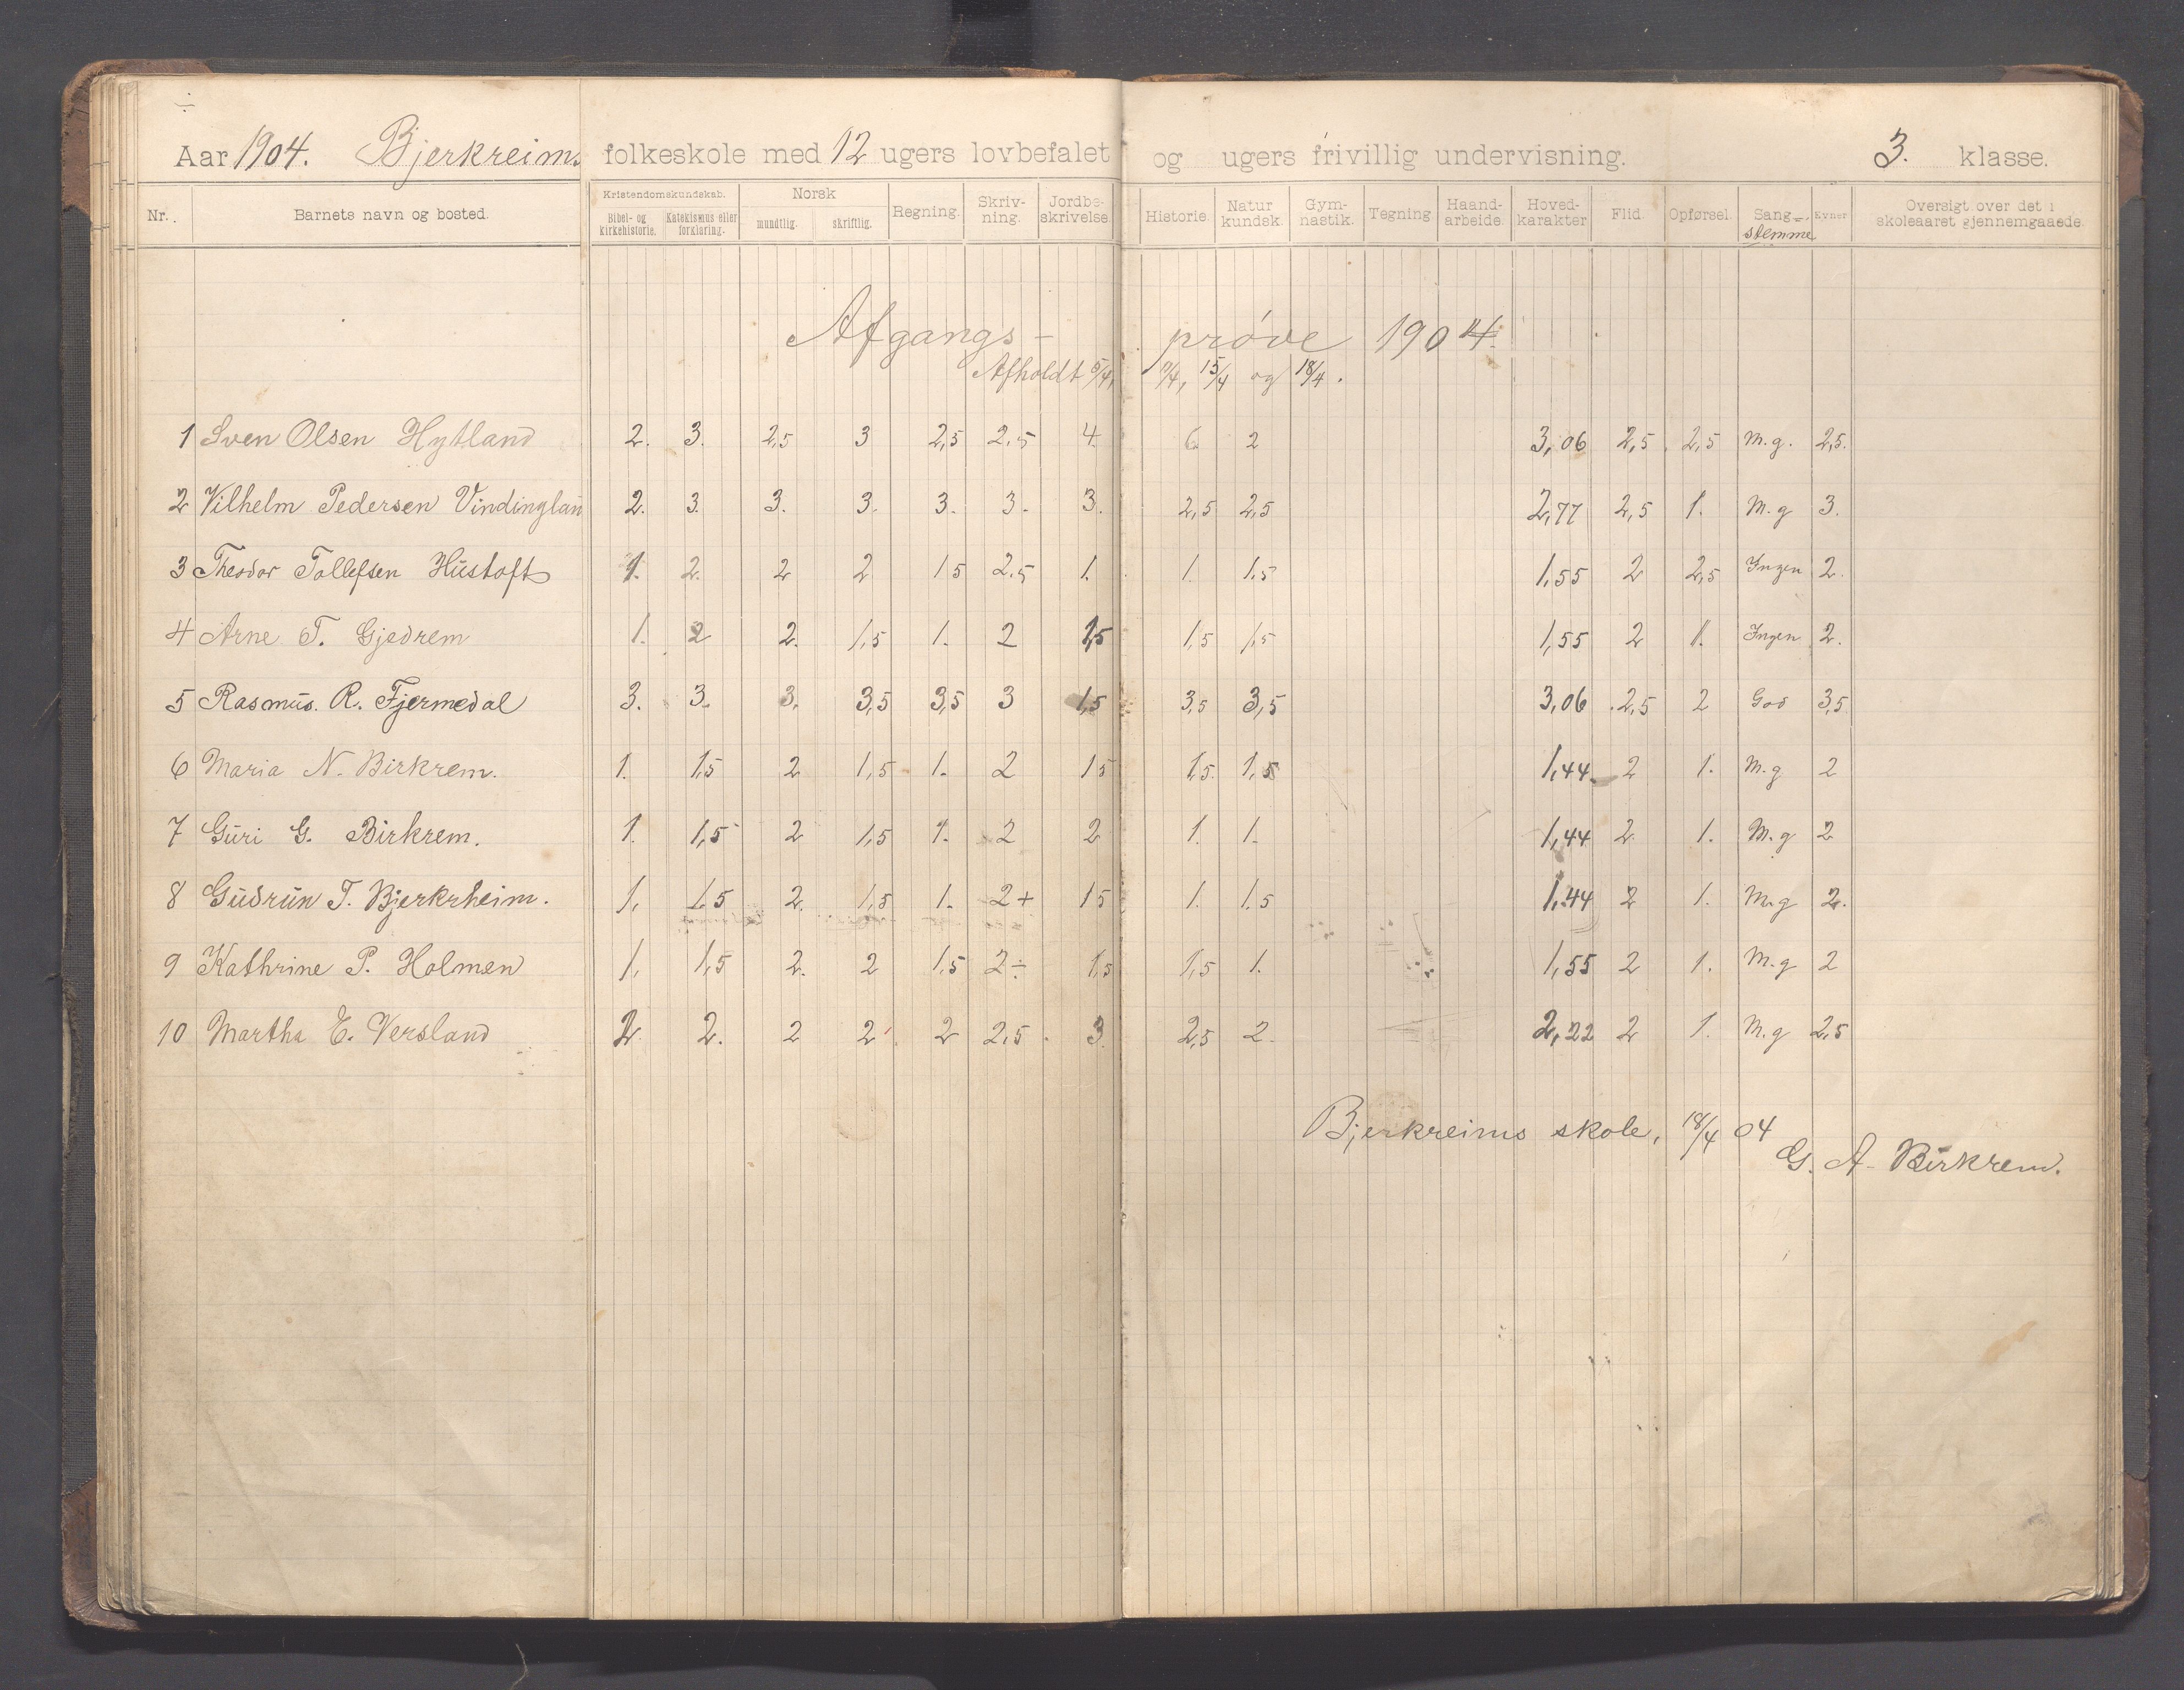 Aar 1904. Bjerkreims folkeskole med 12 ugers lovbefalet og ugers frivillig undervisning. 3. klasse.
Nr. Barnets navn og bosted. Kristendomskundskab. Bibel- og kirkehistorie. Katekismus eller forklaring. Norsk mundtlig. skriftlig. Regning. Skriv-ning. Jordbe-skrivelse. Historie. Natur kundsk. Gym-nastik. Tegning Haand-arbeide. Hoved-karakter Flid. Opførsel. Sang-stemme Evner Oversigt over det i skoleaaret gjennemgaaede.
Afgangs- prøve 1904.
Afholdt 5/4, 9/4, 15/4 og 18/4.
1 Sven Olsen Hytland 2. 3. 2,5 3 2,5 2.5 4. 6 2 3,06 2,5 2,5 M.g. 2,5.
2 Vilhelm Pedersen Vindinglan 2. 3. 3. 3. 3. 3. 3. 2,5 2,5 2,77 2,5 1. M.g 3.
3 Theodor Tollefsen Hustoft 1. 2. 2 2 1 5 2.5 1. 1. 1.5 1,55 2 2,5 Ingen 2.
4 Arne T. Gjedrem 1. 2 2. 1,5 1. 2 1,5 1,5 1,5 1,55 2 1. Ingen 2.
5 Rasmus. R. Fjermedal 3. 3. 3. 3,5 3,5 3 1,5 3,5 3,5 3,06 2,5 2 God 3,5
6 Maria N. Birkrem. 1. 1,5 2 1,5 1. 2 1 5 1,5. 1,5 1,44 2 1. M.g 2
7 Guri G. Birkrem. 1. 1,5 2 1,5 1. 2 2 1. 1. 1,44 2. 1. M.g 2
8 Gudrun T. Bjerkrheim. 1. 1.5 2. 1,5 1. 2+ 1 5 1. 1.5 1,44 2 1. M.g 2.
9 Kathrine P. Holmen 1. 1,5 2. 2 1.5 2÷ 1,5 1,5 1. 1,55 2 1. M.g 2
10 Martha E. Versland 2. 2. 2 2 2 2,5 3. 2,5 2. 2,22 2 1. M.g 2,5
Bjerkreims skole, 18/4 04
G. A. Birkrem.